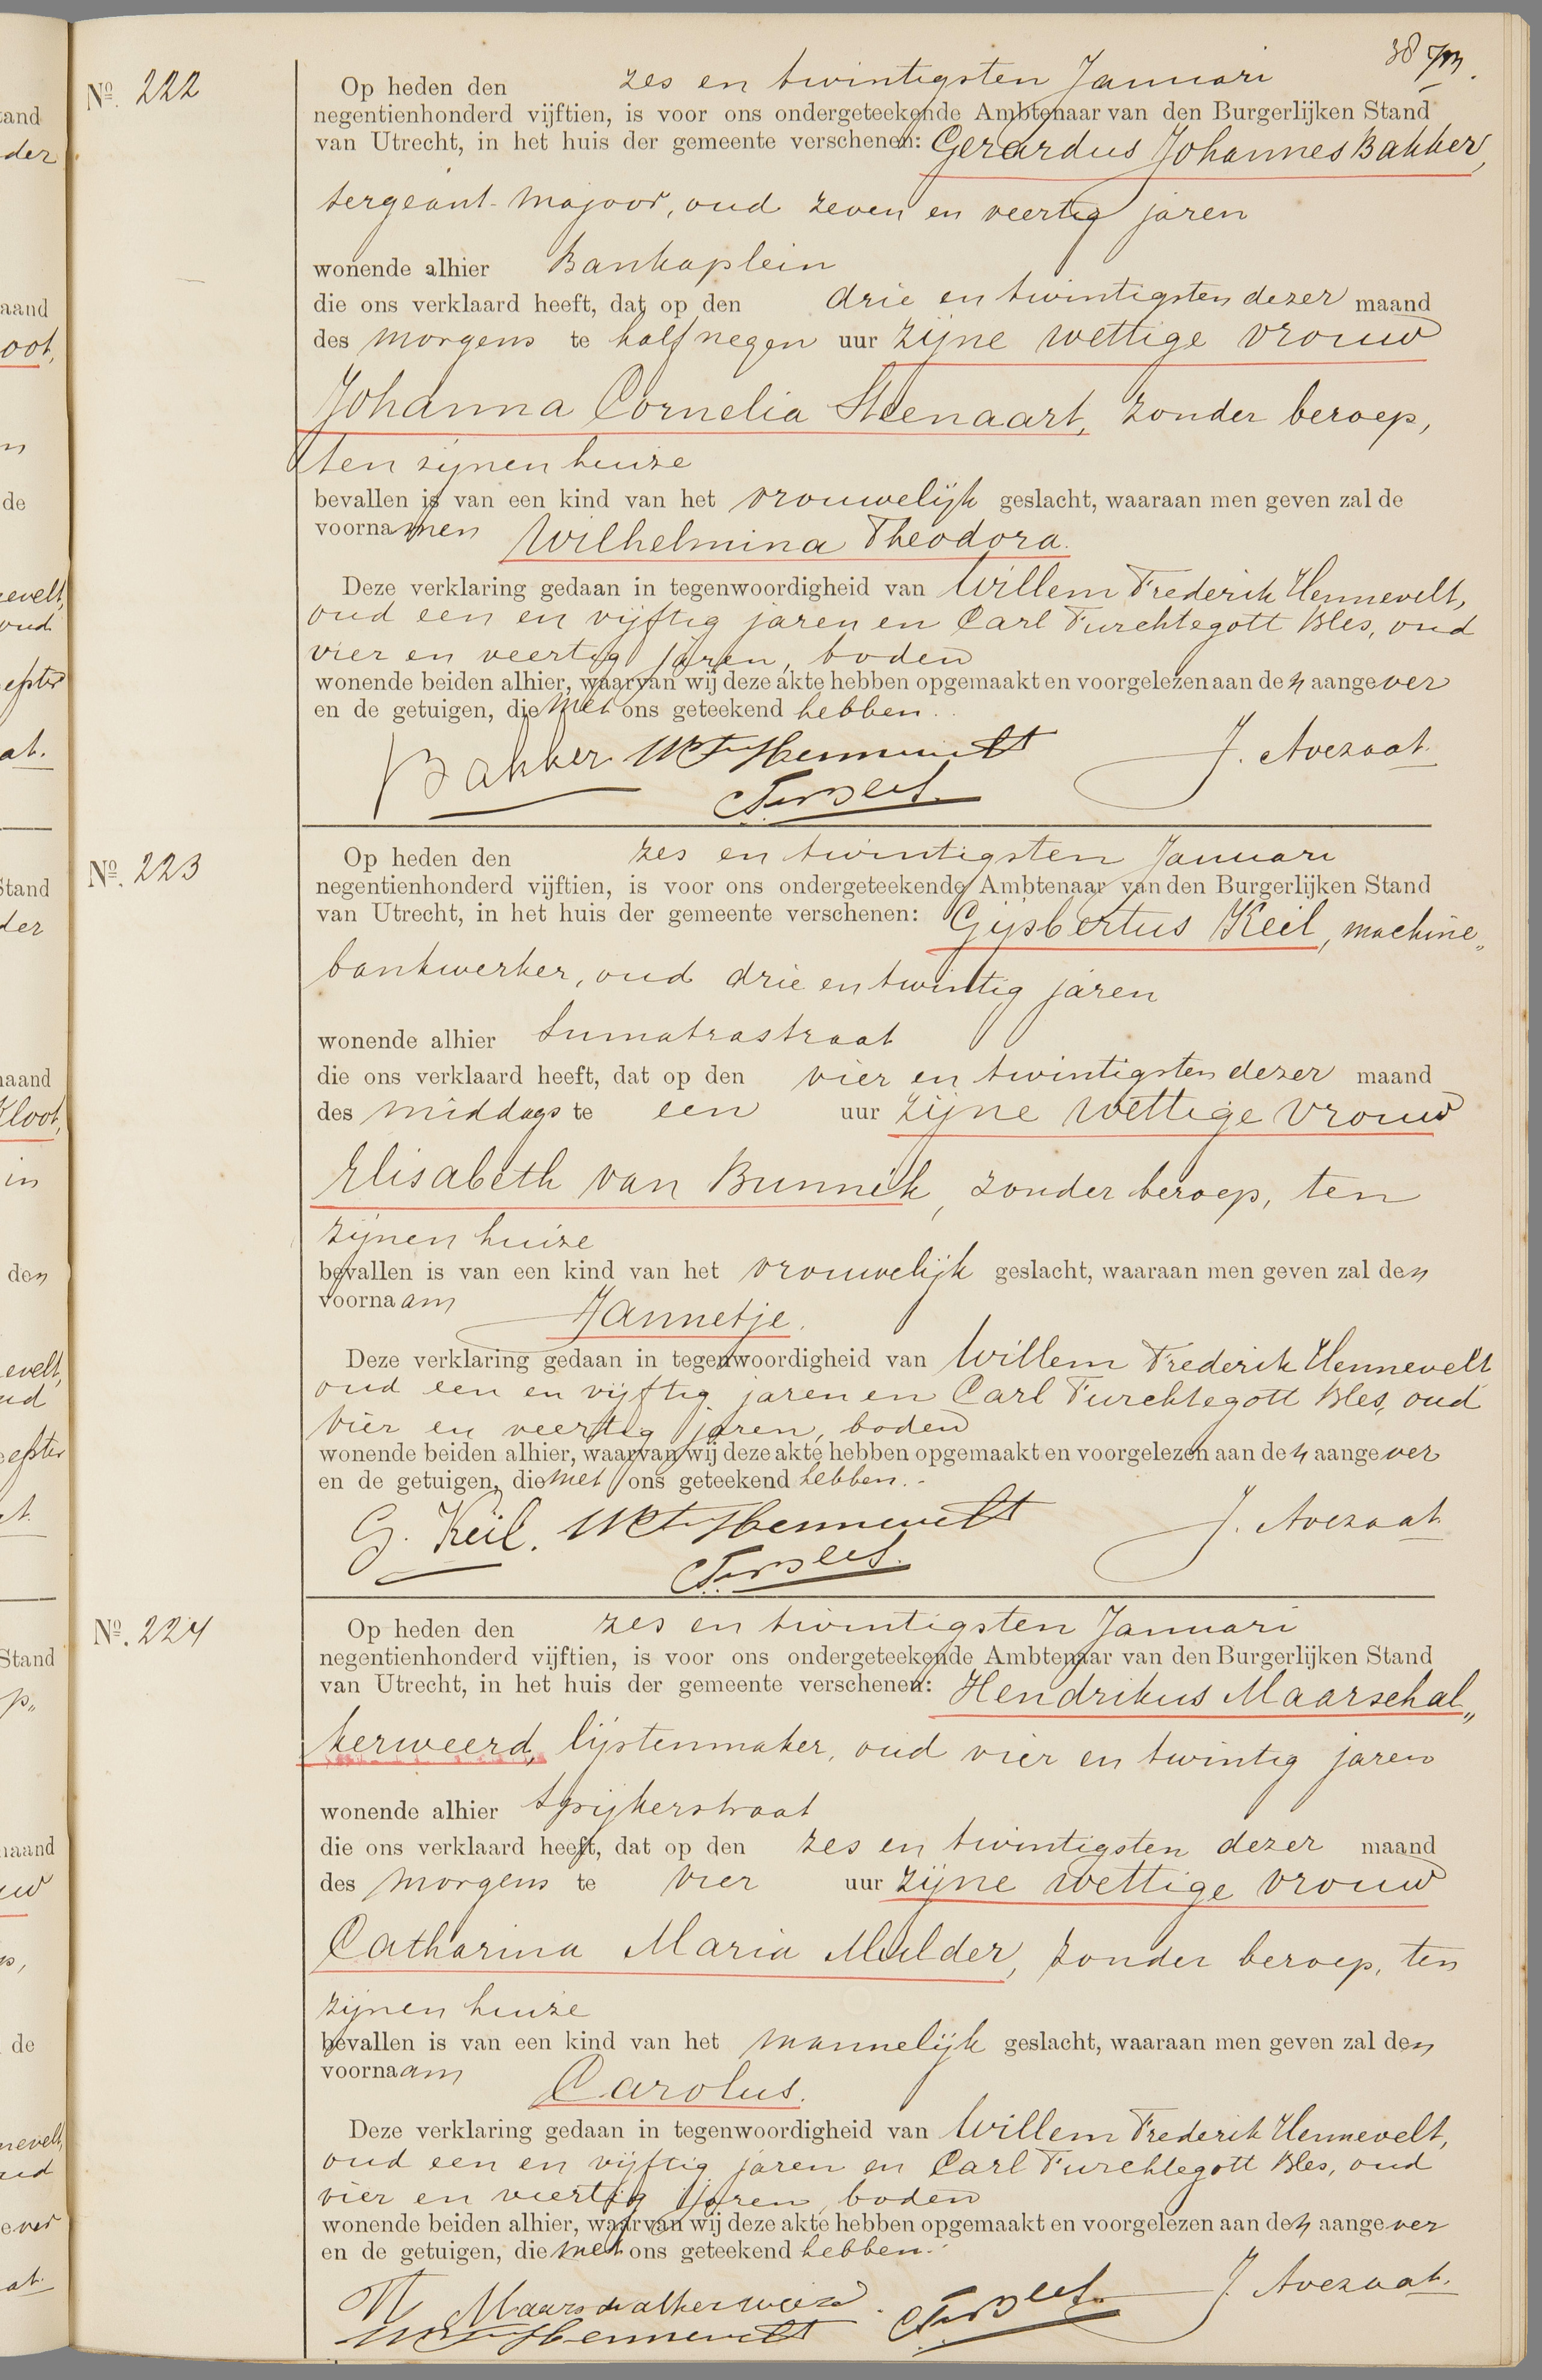 38
Nº. 222
Op heden den zes en twintigsten Januari
negentienhonderd vijftien, is voor ons ondergeteekende Ambtenaar van den Burgerlijken Stand
van Utrecht, in het huis der gemeente verschenen: Gerardus Johannes Bakker,
sergeant-majoor, oud zeven en veertig jaren
wonende alhier Bankaplein
die ons verklaard heeft, dat op den drie en twintigsten dezer maand
des morgens te half negen uur zijne wettige vrouw
Johanna Cornelia Steenaart, zonder beroep,
ten zijnen huize
bevallen is van een kind van het vrouwelijk geslacht, waaraan men geven zal de
voornamen Wilhelmina Theodora.
Deze verklaring gedaan in tegenwoordigheid van Willem Frederik Hennevelt,
oud een en vijftig jaren en Carl Furchtegott Bles, oud
vier en veertig jaren, boden
wonende beiden alhier, waarvan wij deze akte hebben opgemaakt en voorgelezen aan den aangever
en de getuigen, die met ons geteekend hebben.
Bakker WF Hennevelt J. Avezaat
CFBles.
Nº. 223
Op heden den zes en twintigsten Januari
negentienhonderd vijftien, is voor ons ondergeteekende Ambtenaar van den Burgerlijken Stand
van Utrecht, in het huis der gemeente verschenen: Gijsbertus Keil, machine„
bankwerker, oud drie en twintig jaren
wonende alhier Sumatrastraat
die ons verklaard heeft, dat op den vier en twintigsten dezer maand
des middags te een uur zijne wettige vrouw
Elisabeth van Bunnik, zonder beroep, ten
zijnen huize
bevallen is van een kind van het vrouwelijk geslacht, waaraan men geven zal den
voornaam Jannetje.
Deze verklaring gedaan in tegenwoordigheid van Willem Frederik Hennevelt
oud een en vijftig jaren en Carl Furchtegott Bles, oud
vier en veertig jaren, boden
wonende beiden alhier, waarvan wij deze akte hebben opgemaakt en voorgelezen aan den aangever
en de getuigen, die met ons geteekend hebben.
G. Keil. WF Hennevelt J. Avezaat
CFBles.
Nº. 224
Op heden den zes en twintigsten Januari
negentienhonderd vijftien, is voor ons ondergeteekende Ambtenaar van den Burgerlijken Stand
van Utrecht, in het huis der gemeente verschenen: Hendrikus Maarschal„
kerweerd, lijstenmaker, oud vier en twintig jaren
wonende alhier Spijkerstraat
die ons verklaard heeft, dat op den zes en twintigsten dezer maand
des morgens te vier uur zijne wettige vrouw
Catharina Maria Mulder, zonder beroep, ten
zijnen huize
bevallen is van een kind van het mannelijk geslacht, waaraan men geven zal den
voornaam Carolus.
Deze verklaring gedaan in tegenwoordigheid van Willem Frederik Hennevelt,
oud een en vijftig jaren en Carl Furchtegott Bles, oud
vier en veertig jaren, boden
wonende beiden alhier, waarvan wij deze akte hebben opgemaakt en voorgelezen aan den aangever
en de getuigen, die met ons geteekend hebben.
H Maarschalkerweerd. CFBles. J. Avezaat.
WF Hennevelt